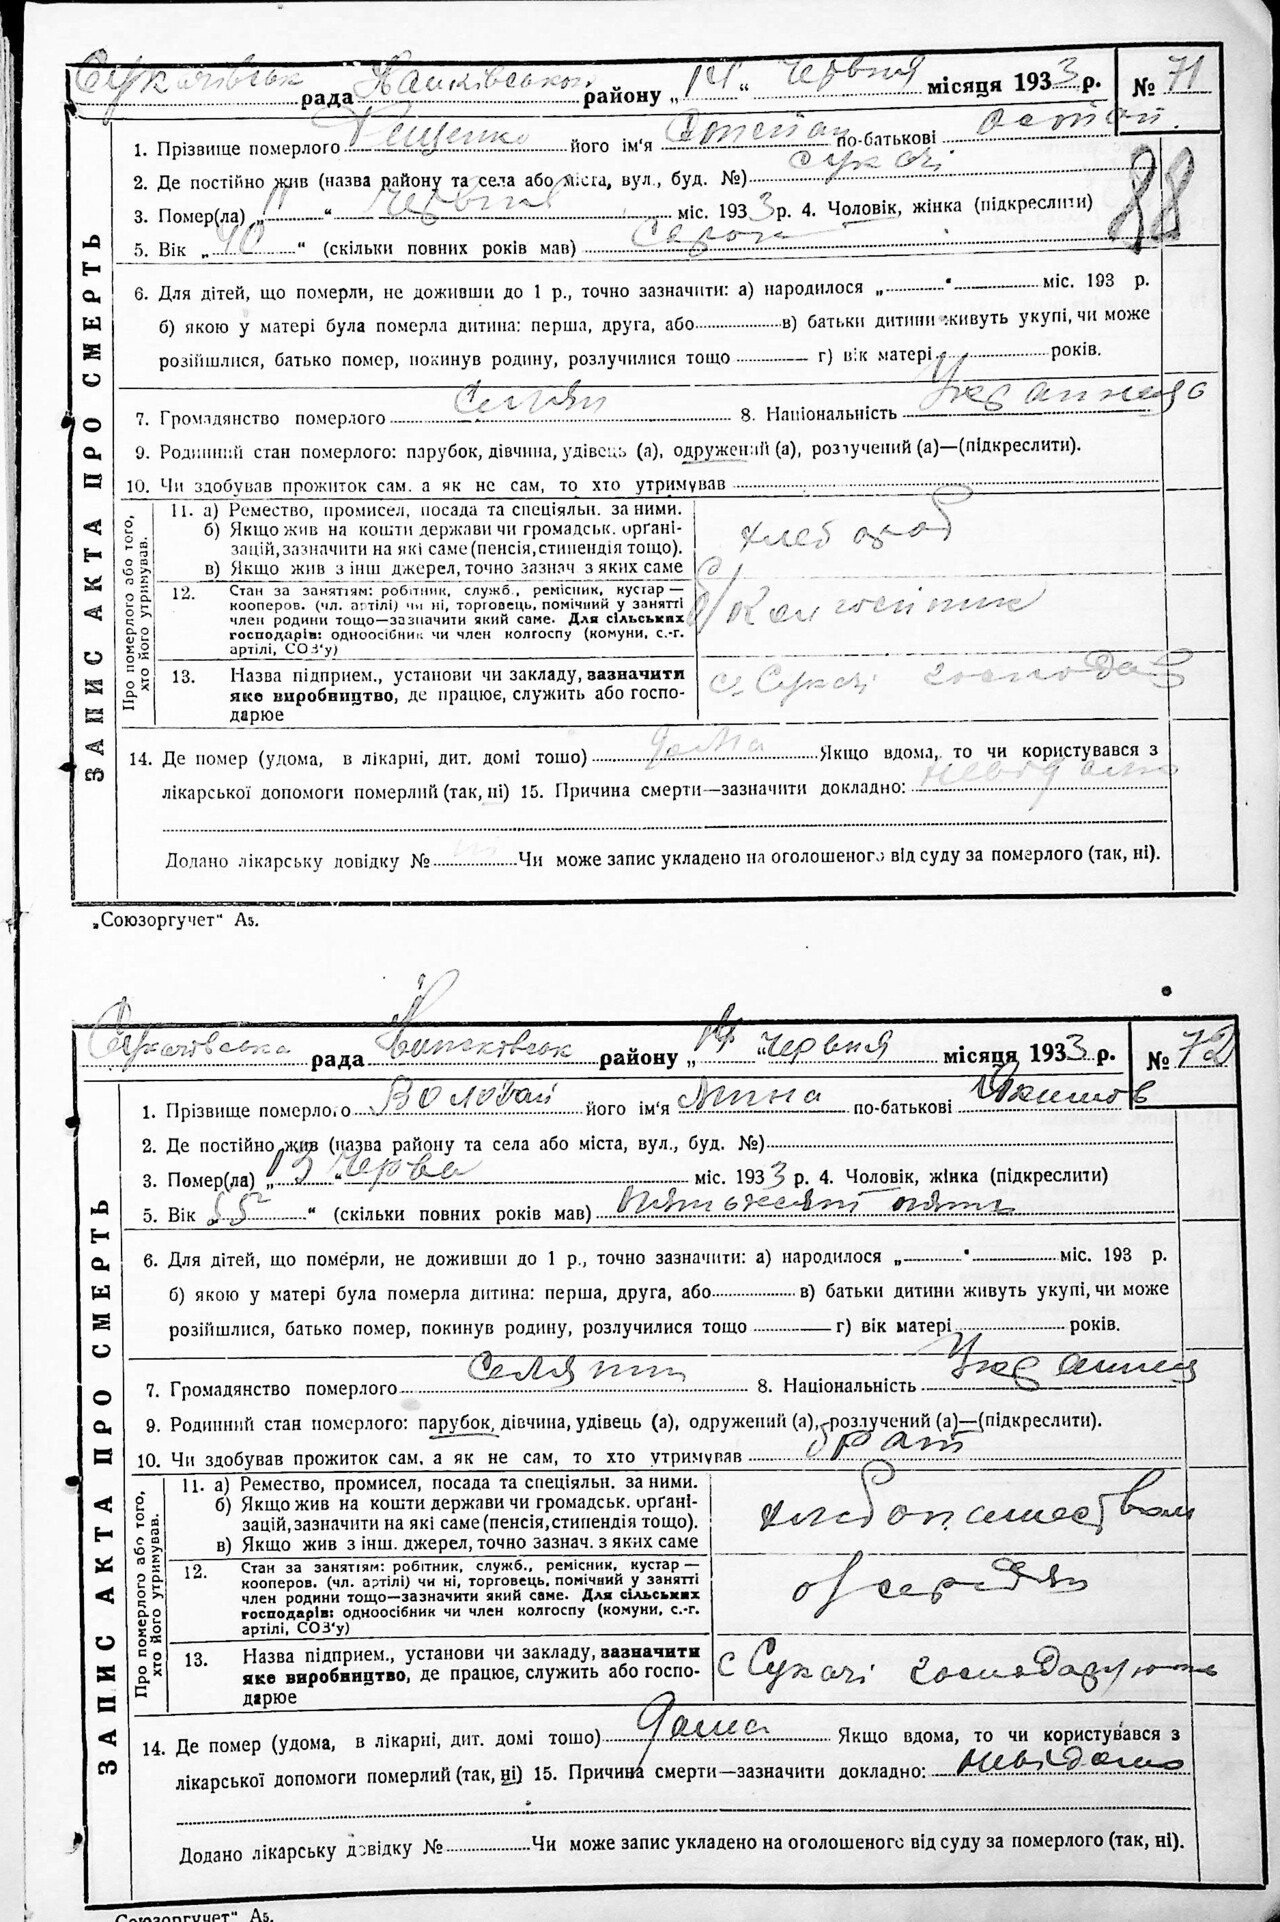 рада Ханківського району „14“ Червня місяця 1933 р. № 71
1. Прізвище померлого його ім'я Степан по-батькові Остап.
88
2. Де постійно жив (назва району та села або міста, вул., буд. №) Сукачі
3. Помер(ла) „11“ Червня міс. 1933 р. 4. Чоловік, жінка (підкреслити)
5. Вік „40“ (скільки повних років мав) Сорок
6. Для дітей, що померли, не доживши до 1 р., точно зазначити: а) народилося „ “ міс. 193 р.
б) якою у матері була померла дитина: перша, друга, або в) батьки дитини живуть укупі, чи може
розійшлися, батько помер, покинув родину, розлучилися тощо г) вік матері років.
7. Громадянство померлого Селян 8. Національність Украинець
9. Родинний стан померлого: парубок, дівчина, удівець (а), одружений (а), розлучений (а)—(підкреслити).
10. Чи здобував прожиток сам, а як не сам, то хто утримував
Про померлого або того, хто його утримував.
11. а) Ремество, промисел, посада та спеціяльн. за ними.
б) Якщо жив на кошти держави чи громадськ. орґані-
зацій, зазначити на які саме (пенсія, стипендія тощо).
в) Якщо жив з інш джерел, точно зазнач з яких саме
хлебороб
12. Стан за заняттям: робітник, служб., ремісник, кустар —
кооперов. (чл. артілі) чи ні, торговець, помічний у занятті
член родини тощо—зазначити який саме. Для сільських
господарів: одноосібник чи член колгоспу (комуни, с.-г.
артілі, СОЗ'у)
13. Назва підприєм., установи чи закладу, зазначити
яке виробництво, де працює, служить або госпо-
дарює
с. Сукачі господар
14. Де помер (удома, в лікарні, дит. домі тошо) дома Якщо вдома, то чи користувався з
лікарської допомоги померлий (так, ні) 15. Причина смерти—зазначити докладно: невідомо
Додано лікарську довідку № ні Чи може запис укладено на оголошеного від суду за померлого (так, ні).
ЗАПИС АКТА ПРО СМЕРТЬ
„Союзоргучет“ А5.
рада району „14“ Червня місяця 1933 р. № 72
1. Прізвище померлого Волотай його ім'я Мина по-батькові Якимов
2. Де постійно жив (назва району та села або міста, вул., буд. №)
3. Помер(ла) „13“ Черва міс. 1933 р. 4. Чоловік, жінка (підкреслити)
5. Вік 55 “ (скільки повних років мав) пятьдесят пять
6. Для дітей, що померли, не доживши до 1 р., точно зазначити: а) народилося „ “ міс. 193 р.
б) якою у матері була померла дитина: перша, друга, або в) батьки дитини живуть укупі, чи може
розійшлися, батько помер, покинув родину, розлучилися тощо г) вік матері років.
7. Громадянство померлого Селянин 8. Національність Украинец
9. Родинний стан померлого: парубок, дівчина, удівець (а), одружений (а), розлучений (а)—(підкреслити).
10. Чи здобував прожиток сам, а як не сам, то хто утримував брат
Про померлого або того, хто його утримував.
11. а) Ремество, промисел, посада та спеціяльн. за ними.
б) Якщо жив на кошти держави чи громадськ. орґані-
зацій, зазначити на які саме (пенсія, стипендія тощо).
в) Якщо жив з інш. джерел, точно зазнач. з яких саме
хлебопашеством
12. Стан за заняттям: робітник, служб., ремісник, кустар —
кооперов. (чл. артілі) чи ні, торговець, помічний у занятті
член родини тощо—зазначити який саме. Для сільських
господарів: одноосібник чи член колгоспу (комуни, с.-г.
артілі, СОЗ'у)
13. Назва підприєм., установи чи закладу, зазначити
яке виробництво, де працює, служить або госпо-
дарює
с Сукачі господарюють
14. Де помер (удома, в лікарні, дит. домі тошо) дома Якщо вдома, то чи користувався з
лікарської допомоги померлий (так, ні) 15. Причина смерти—зазначити докладно: невідомо
Додано лікарську довідку № Чи може запис укладено на оголошеного від суду за померлого (так, ні).
ЗАПИС АКТА ПРО СМЕРТЬ
Союзоргучет“ А5.